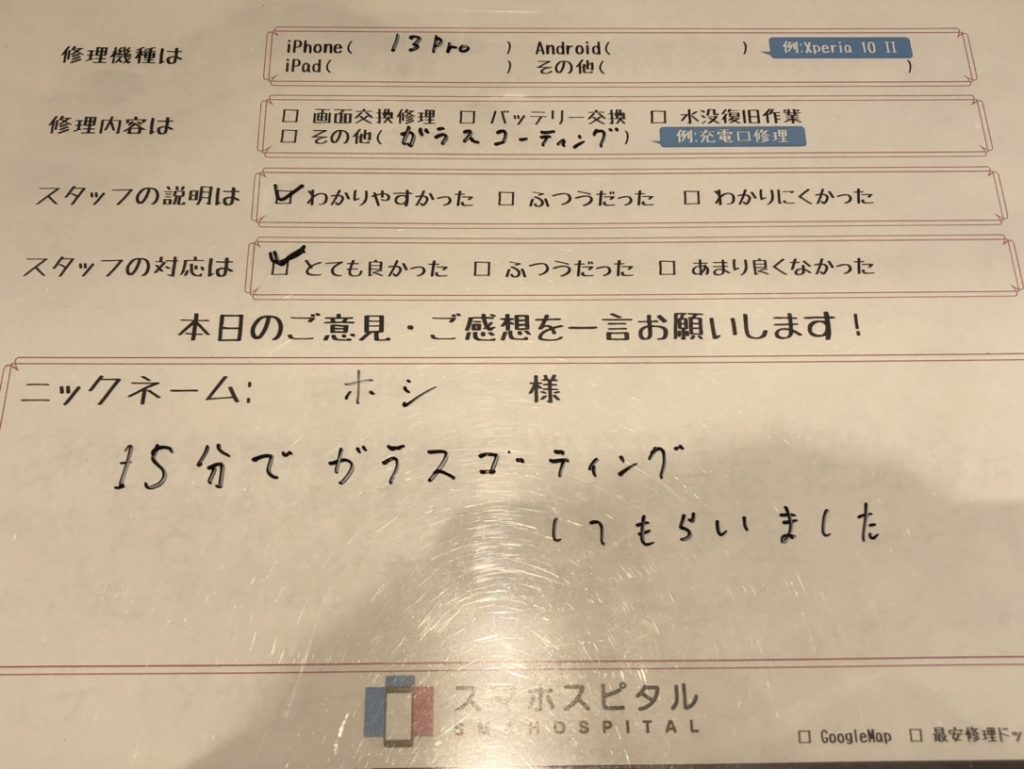 修理機種は
iPhone( 13 Pro ) Android( ) 例:Xperia 10 II
iPad( ) その他( )
修理内容は
□ 画面交換修理 □ バッテリー交換 □ 水没復旧作業
□ その他( ガラスコーティング ) 例:充電口修理
スタッフの説明は
☑ わかりやすかった □ ふつうだった □ わかりにくかった
スタッフの対応は
☑ とても良かった □ ふつうだった □ あまり良くなかった
本日のご意見・ご感想を一言お願いします!
ニックネーム: ホシ 様
15分でガラスコーティング
してもらいました
スマホスピタル
SMAHOSPITAL
□ GoogleMap □ 最安修理ドッ